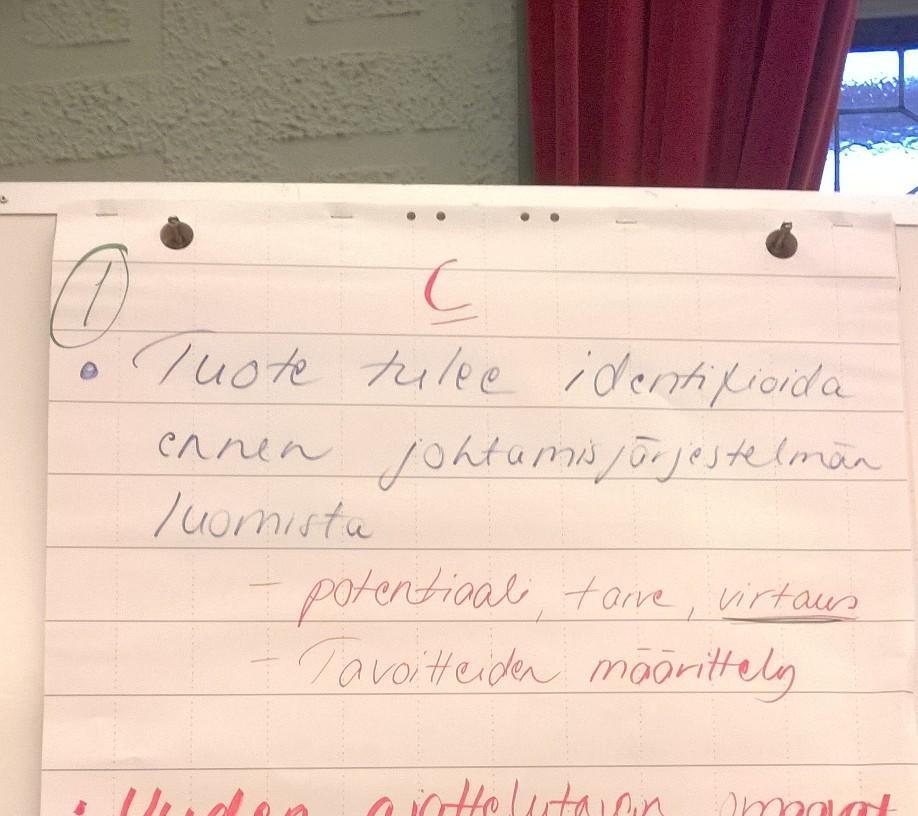 1
C
• Tuote tulee identifioida
ennen johtamisjärjestelmän
luomista
- potentiaali, tarve, virtaus
- Tavoitteiden määrittely
• Uuden ajattelutavan